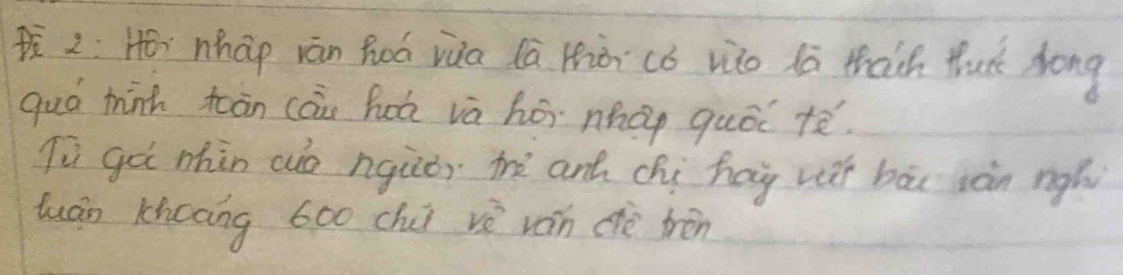 Đề 2: Hội nhập văn hoá vừa là thời cơ vừa là thách thức trong
quá trình toàn cầu hoá và hội nhập quốc tế.
Từ góc nhìn của người trẻ anh chị hãy viết bài văn nghị
luận khoảng 600 chữ về vấn đề trên